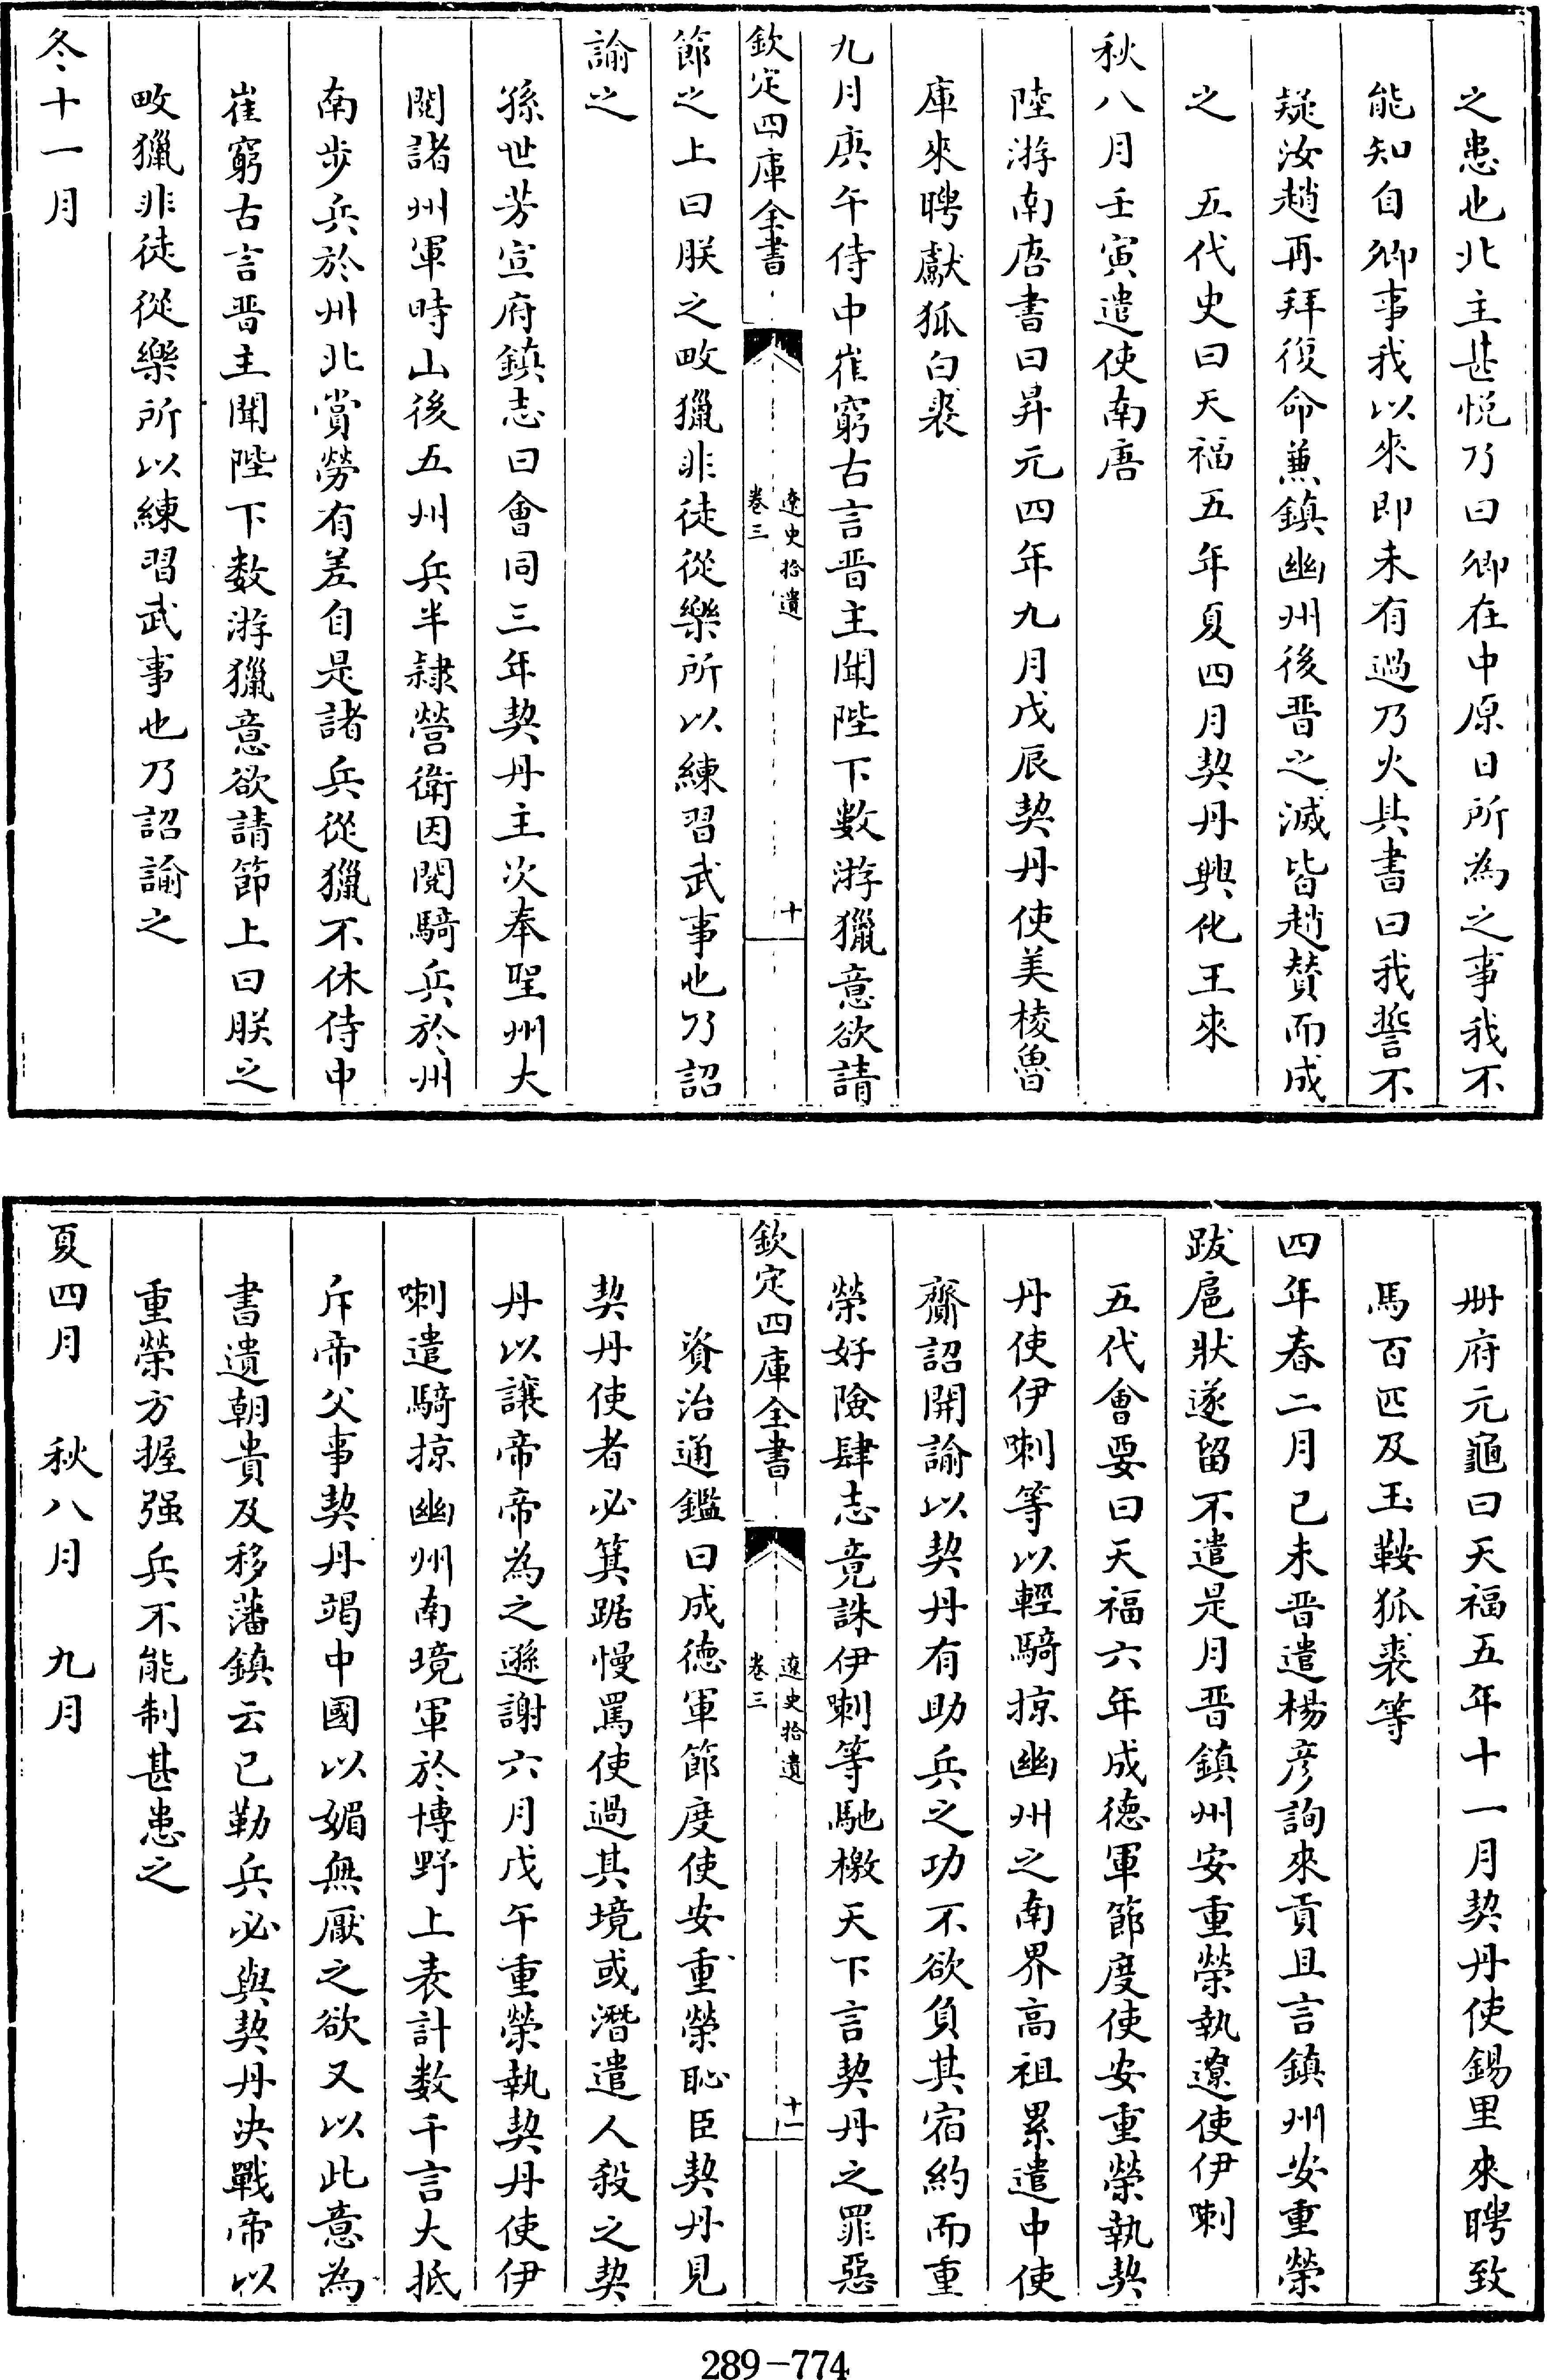 之患也北主甚悦乃曰卿在中原日所為之事我不
能知自卿事我以來即未有過乃火其書曰我誓不
疑汝趙再拜復命兼鎮幽州後晉之滅皆趙贊而成
之　五代史曰天福五年夏四月契丹興化王來
秋八月壬寅遣使南唐
陸游南唐書曰昇元四年九月戊辰契丹使美稜魯
庫來聘獻狐白裘
九月庚午侍中崔窮古言晉主聞陛下數游獵意欲請
欽定四庫全書
遼史拾遺
卷三
十
節之上曰朕之畋獵非徒從樂所以練習武事也乃詔
諭之
孫世芳宣府鎮志曰會同三年契丹主次奉聖州大
閱諸州軍時山後五州兵半隷營衛因閱騎兵於州
南步兵於州北賞勞有差自是諸兵從獵不休侍中
崔窮古言晉主聞陛下数游獵意欲請節上曰朕之
畋獵非徒從樂所以練習武事也乃詔諭之
冬十一月
册府元龜曰天福五年十一月契丹使錫里來聘致
馬百匹及玉鞍狐裘等
四年春二月己未晉遣楊彦詢來貢且言鎮州安重榮
跋扈狀遂留不遣是月晉鎮州安重榮執遼使伊喇
五代會要曰天福六年成德軍節度使安重榮執契
丹使伊喇等以輕騎掠幽州之南界高祖累遣中使
齎詔開諭以契丹有助兵之功不欲負其宿約而重
榮好險肆志竟誅伊喇等馳檄天下言契丹之罪惡
欽定四庫全書
遼史拾遺
卷三
十一
資治通鑑曰成德軍節度使安重榮恥臣契丹見
契丹使者必箕踞慢罵使過其境或潛遣人殺之契
丹以讓帝帝為之遜謝六月戊午重榮執契丹使伊
喇遣騎掠幽州南境軍於博野上表計数千言大抵
斥帝父事契丹竭中國以媚無厭之欲又以此意為
書遺朝貴及移藩鎮云已勒兵必與契丹决戰帝以
重榮方握强兵不能制甚患之
夏四月　秋八月　九月
289-774